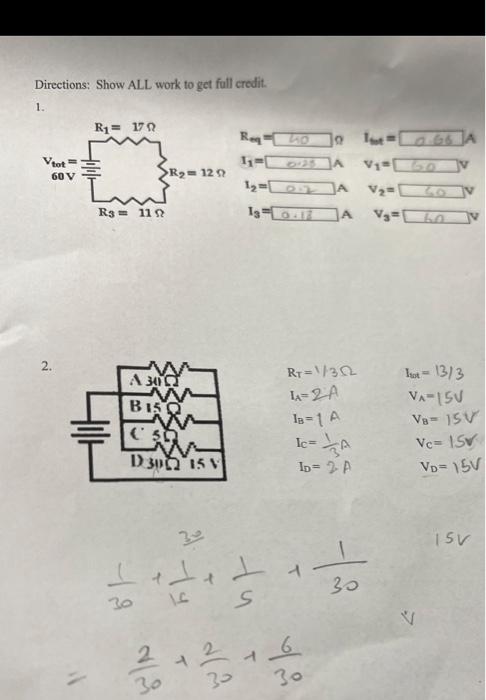 Directions: Show ALL work to get full credit.
1.
R₁= 17 Ω
Vtot =
60 V
R₂= 12 Ω
R₃= 11 Ω
Req = 40 Ω Itot = 0.66 A
I₁= A V₁= 60 V
I₂= 0.2 A V₂= 60 V
I₃= 0.18 A V₃= 60 V
2.
A 30 Ω
B 15 Ω
C 5 Ω
D 30 Ω 15 V
RT = 1/3 Ω Itot = 13/3
IA= 2A VA= 15V
IB= 1 A VB= 15V
IC= 1/3 A VC= 15V
ID= 2 A VD= 15V
30
15V
1/30 + 1/15 + 1/5 + 1/30
= 2/30 + 2/30 + 6/30